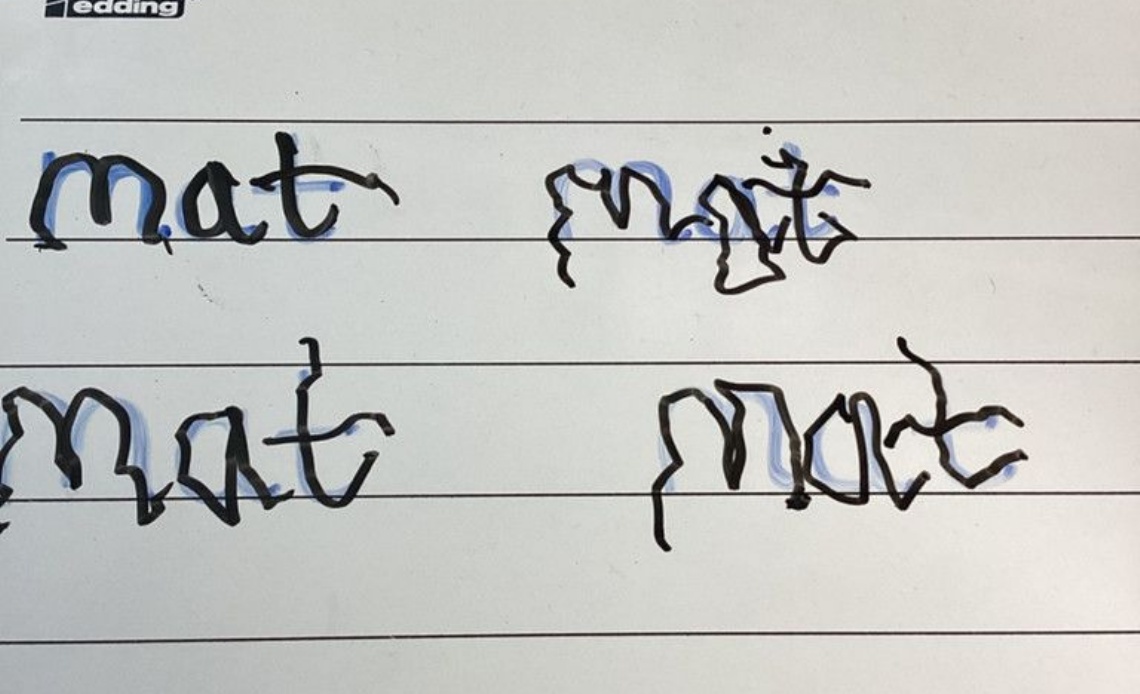 edding
mat mat
mat mat